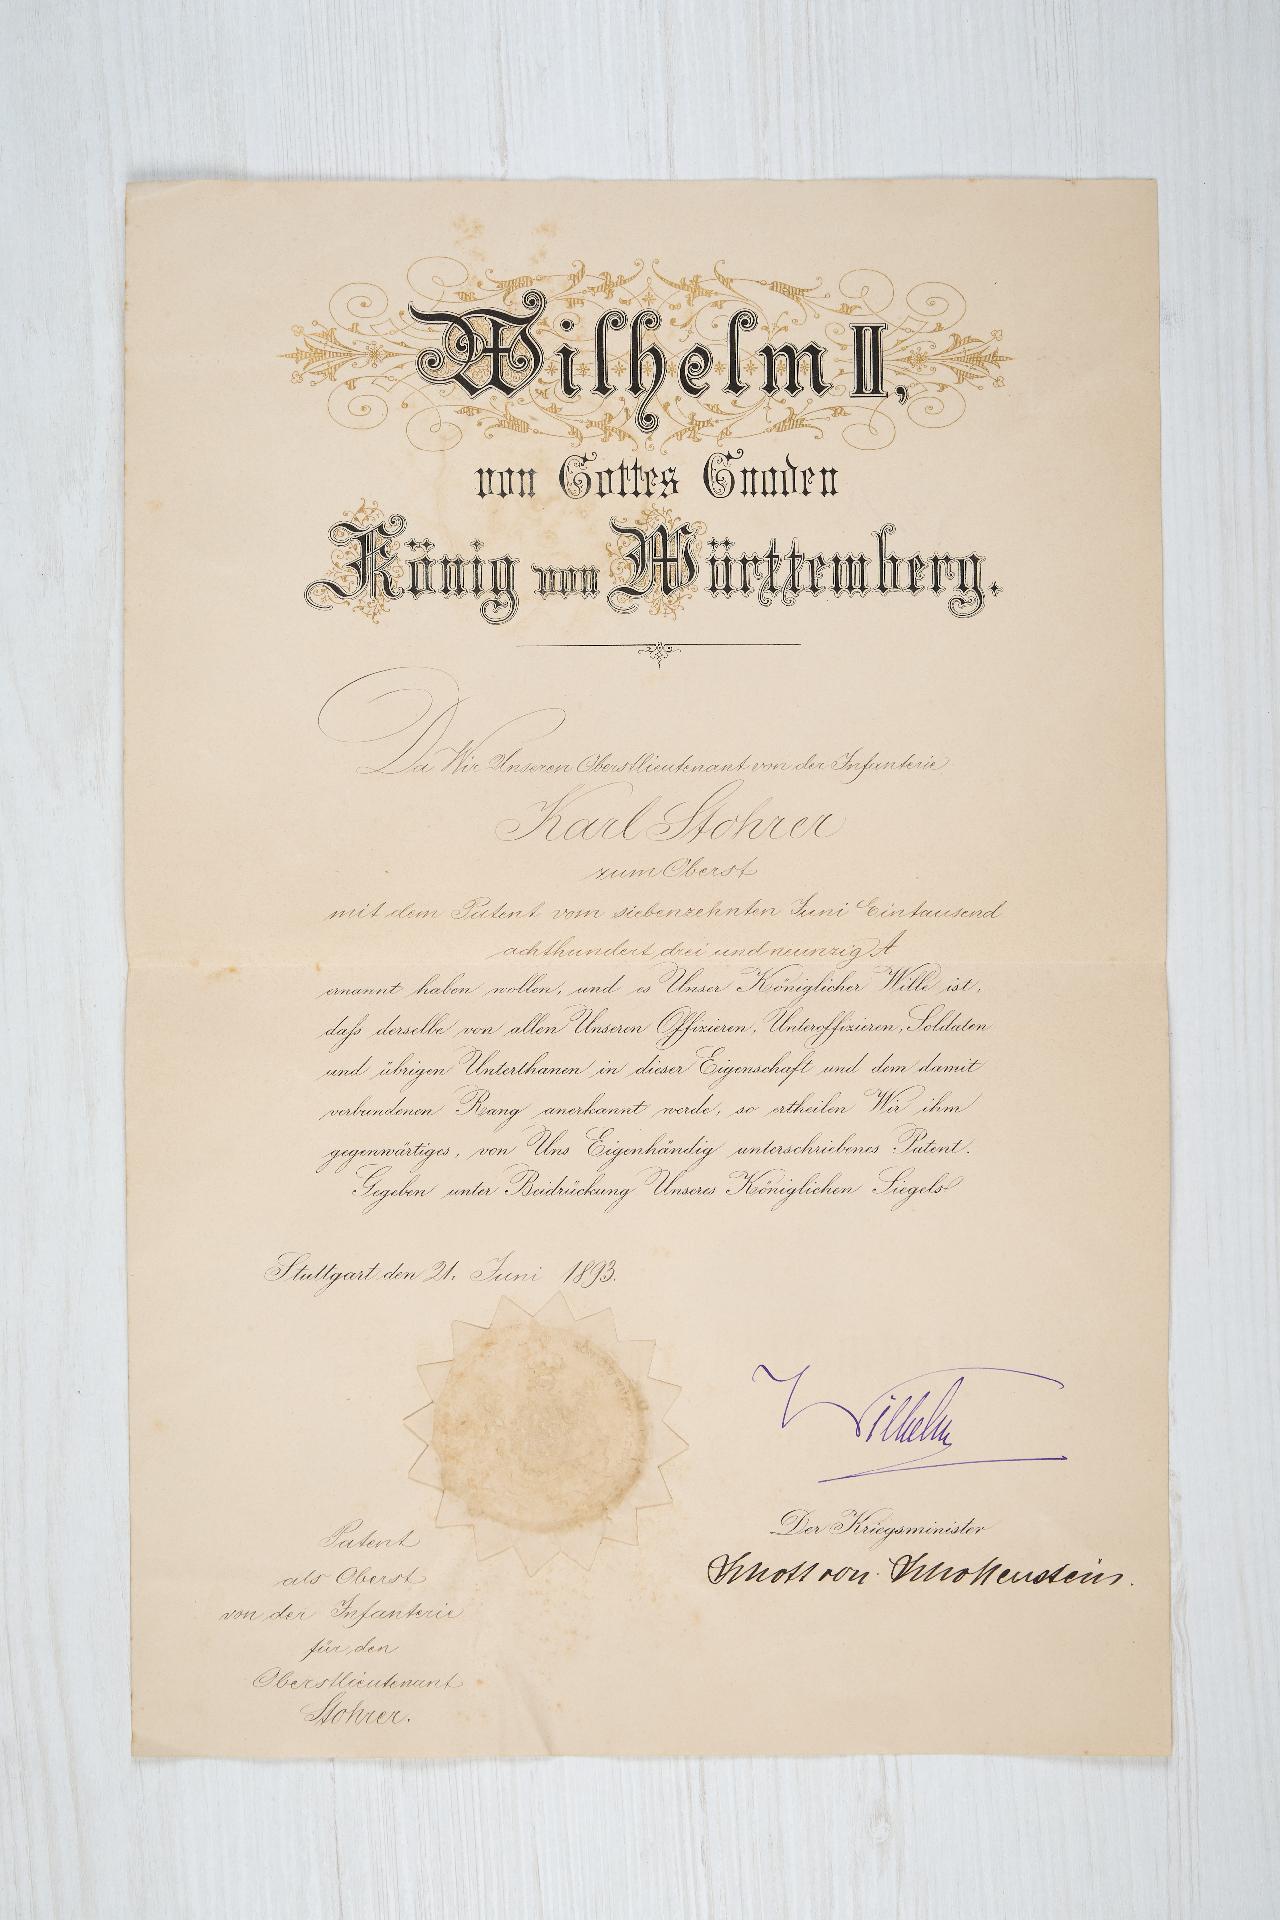 Wilhelm II,
von Gottes Gnaden
König von Württemberg.
Da Wir Unseren Oberstlieutenant von der Infanterie
Karl Stohrer
zum Oberst
mit dem Patent vom siebenzehnten Juni Eintausend
achthundert drei und neunzig A
ernannt haben wollen, und es Unser Königlicher Wille ist,
daß derselbe von allen Unseren Offizieren, Unteroffizieren, Soldaten
und übrigen Unterthanen in dieser Eigenschaft und dem damit
verbundenen Rang anerkannt werde, so ertheilen Wir ihm
gegenwärtiges, von Uns Eigenhändig unterschriebenes Patent.
Gegeben unter Beidrückung Unseres Königlichen Siegels
Stuttgart den 21. Juni 1893.
Wilhelm
Der Kriegsminister
Schott von Schottenstein.
Patent
als Oberst
von der Infanterie
für den
Oberstlieutenant
Stohrer.